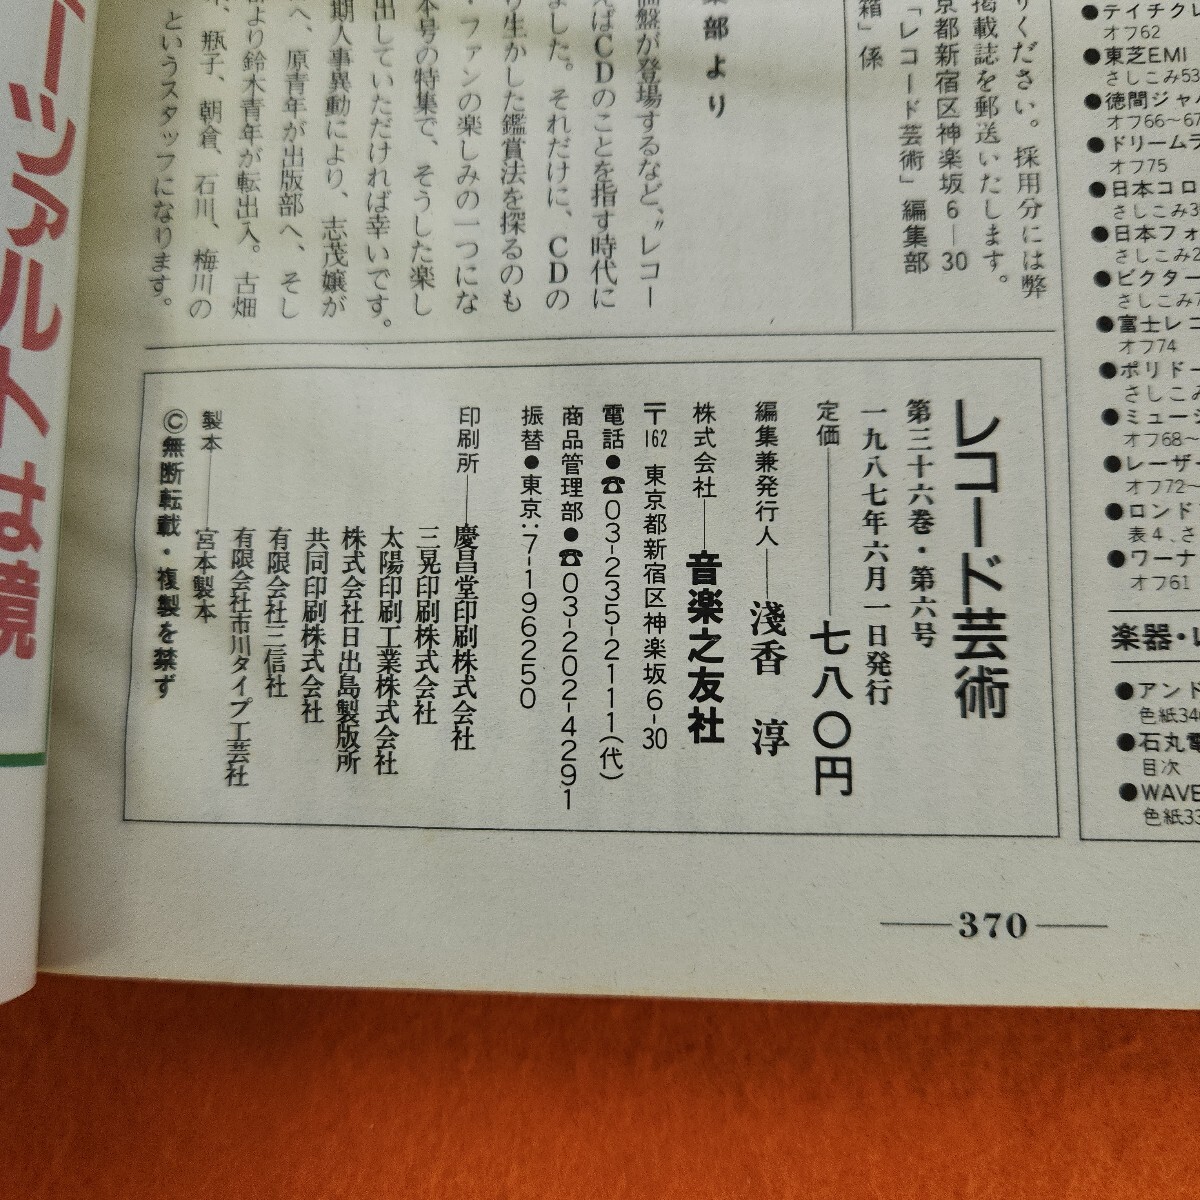 りください。採用分には弊
掲載誌を郵送いたします。
京都新宿区神楽坂6―30
「レコード芸術」編集部
箱」係
部より
輪盤が登場するなど、〝レコー
えばCDのことを指す時代に
ました。それだけに、CDの
り生かした鑑賞法を探るのも
・ファンの楽しみの一つにな
本号の特集で、そうした楽し
出していただければ幸いです。
期人事異動により、志茂嬢が
へ、原青年が出版部へ、そし
より鈴木青年が転出入。古畑
、瓶子、朝倉、石川、梅川の
というスタッフになります。
レコード芸術
第三十六巻・第六号
一九八七年六月一日発行
定価――七八〇円
編集兼発行人――淺香 淳
株式会社――音楽之友社
〒162 東京都新宿区神楽坂6-30
電話●☎03-235-2111(代)
商品管理部●☎03-202-4291
振替●東京:7-196250
印刷所――慶昌堂印刷株式会社
三晃印刷株式会社
太陽印刷工業株式会社
株式会社日出島製版所
共同印刷株式会社
有限会社三信社
有限会社市川タイプ工芸社
製本――宮本製本
©無断転載・複製を禁ず
―370―
●テイチクレ
オフ62
●東芝EMI
さしこみ53
●徳間ジャパ
オフ66〜67
●ドリームラ
オフ75
●日本コロ
さしこみ3
●日本フォ
さしこみ2
●ビクター
さしこみ7
●富士レコ
オフ74
●ポリドー
さしこみ
●ミュージ
オフ68〜
●レーザー
オフ72〜
●ロンド
表4、さ
●ワーナ
オフ61
楽器・レ
●アンド
色紙34
●石丸電
目次
●WAVE
色紙33
ーツァルトは鏡